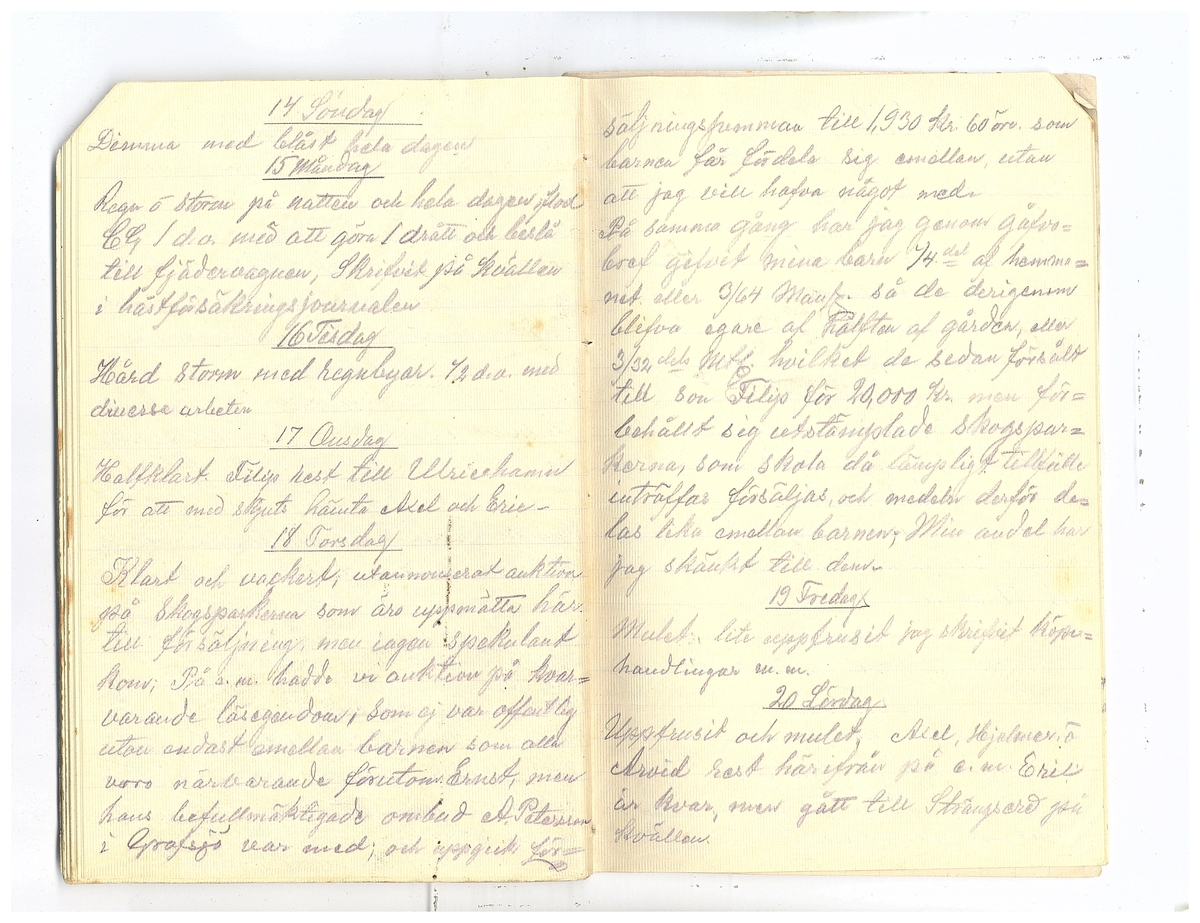 14 Söndag
Dimma med blåst hela dagen
15 Måndag
Regn o storm på natten och hela dagen,
1 d.a. med att göra 1 drätt och beslå
till fjädervagnen, Skrifvit på kvällen
i hästförsäkringsjournalen
16 Tisdag
Hård storm med regnbyar. 1/2 d.a. med
diverse arbeten
17 Onsdag
Halfklart. Filip rest till Ulricehamn
för att med skjuts hämta Axel och Eric –
18 Torsdag
Klart och vackert; utannonserat auktion
på skogsparkerna som äro uppmätta här
till försäljning, men ingen spekulant
kom; På e.m. hadde vi auktion på kvar=
varande lösegendom, som ej var offentlig
utan endast emellan barnen som alla
voro närvarande förutom Ernst, men
hans befullmäktigade ombud A. Petersson
i Grafsjö var med; och uppgick för=
säljningssumman till 1,930 Kr. 60 öre. som
barnen får fördela sig emellan, utan
att jag vill hafva något med.
På samma gång har jag genom gåfvo=
bref gifvit mina barn 1/4 del af hemma=
net, eller 3/64 Mantl. så de derigenom
blifva egare af hälften af gården, eller
3/32 dels Mtl, hvilket de sedan försålt
till son Filip för 20,000 Kr. men för=
behållt sig utstämplade skogspar=
kerna, som skola då lämpligt tillfälle
inträffar försäljas, och medeln derför de=
las lika emellan barnen; Min andel har
jag skänkt till dem.
19 Fredag
Mulet. lite uppfrusit jag skrifvit köpe=
handlingar m.m.
20 Lördag
Uppfrusit och mulet, Axel, Hjelmer o
Arvid rest härifrån på e.m. Eric
är kvar, men gått till Strängsered på
kvällen.